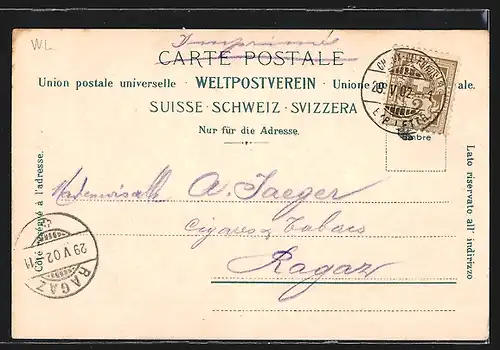 W.L.
Imprimé
CARTE POSTALE
Union postale universelle · WELTPOSTVEREIN · Unione ale.
SUISSE · SCHWEIZ · SVIZZERA
Nur für die Adresse.
29. V. 02
LETTR
imbre
Côté réservé à l'adresse.
Lato riservato all' indirizzo
Mademoiselle A. Jaeger
Cigares & Tabacs
Ragaz
29 V 02
RAGAZ